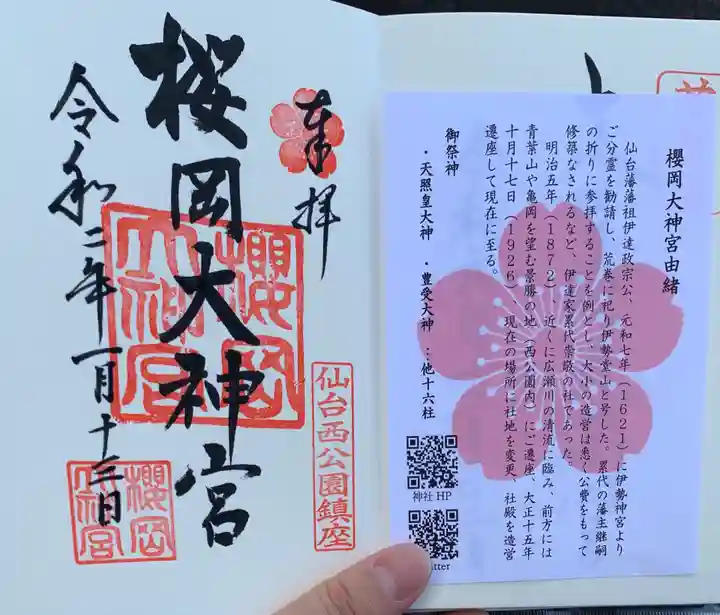 奉拝
櫻岡大神宮
令和二年一月十三日
櫻岡
大神宮
仙台西公園鎮座
櫻岡
大神宮
櫻岡大神宮由緒
仙台藩藩祖伊達政宗公、元和七年（1621）に伊勢神宮より
ご分霊を勧請し、荒巻に祀り伊勢堂山と号した。累代の藩主継嗣
の折りに参拝することを例とし、大小の造営は悉く公費をもって
修築なされるなど、伊達家累代崇敬の社であった。
明治五年（1872）、近くに広瀬川の清流に臨み、前方には
青葉山や亀岡を望む景勝の地（西公園内）にご遷座、大正十五年
十月十七日（1926）、現在の場所に社地を変更、社殿を造営
遷座して現在に至る。
御祭神
・天照皇大神　・豊受大神　…他十六柱
神社HP